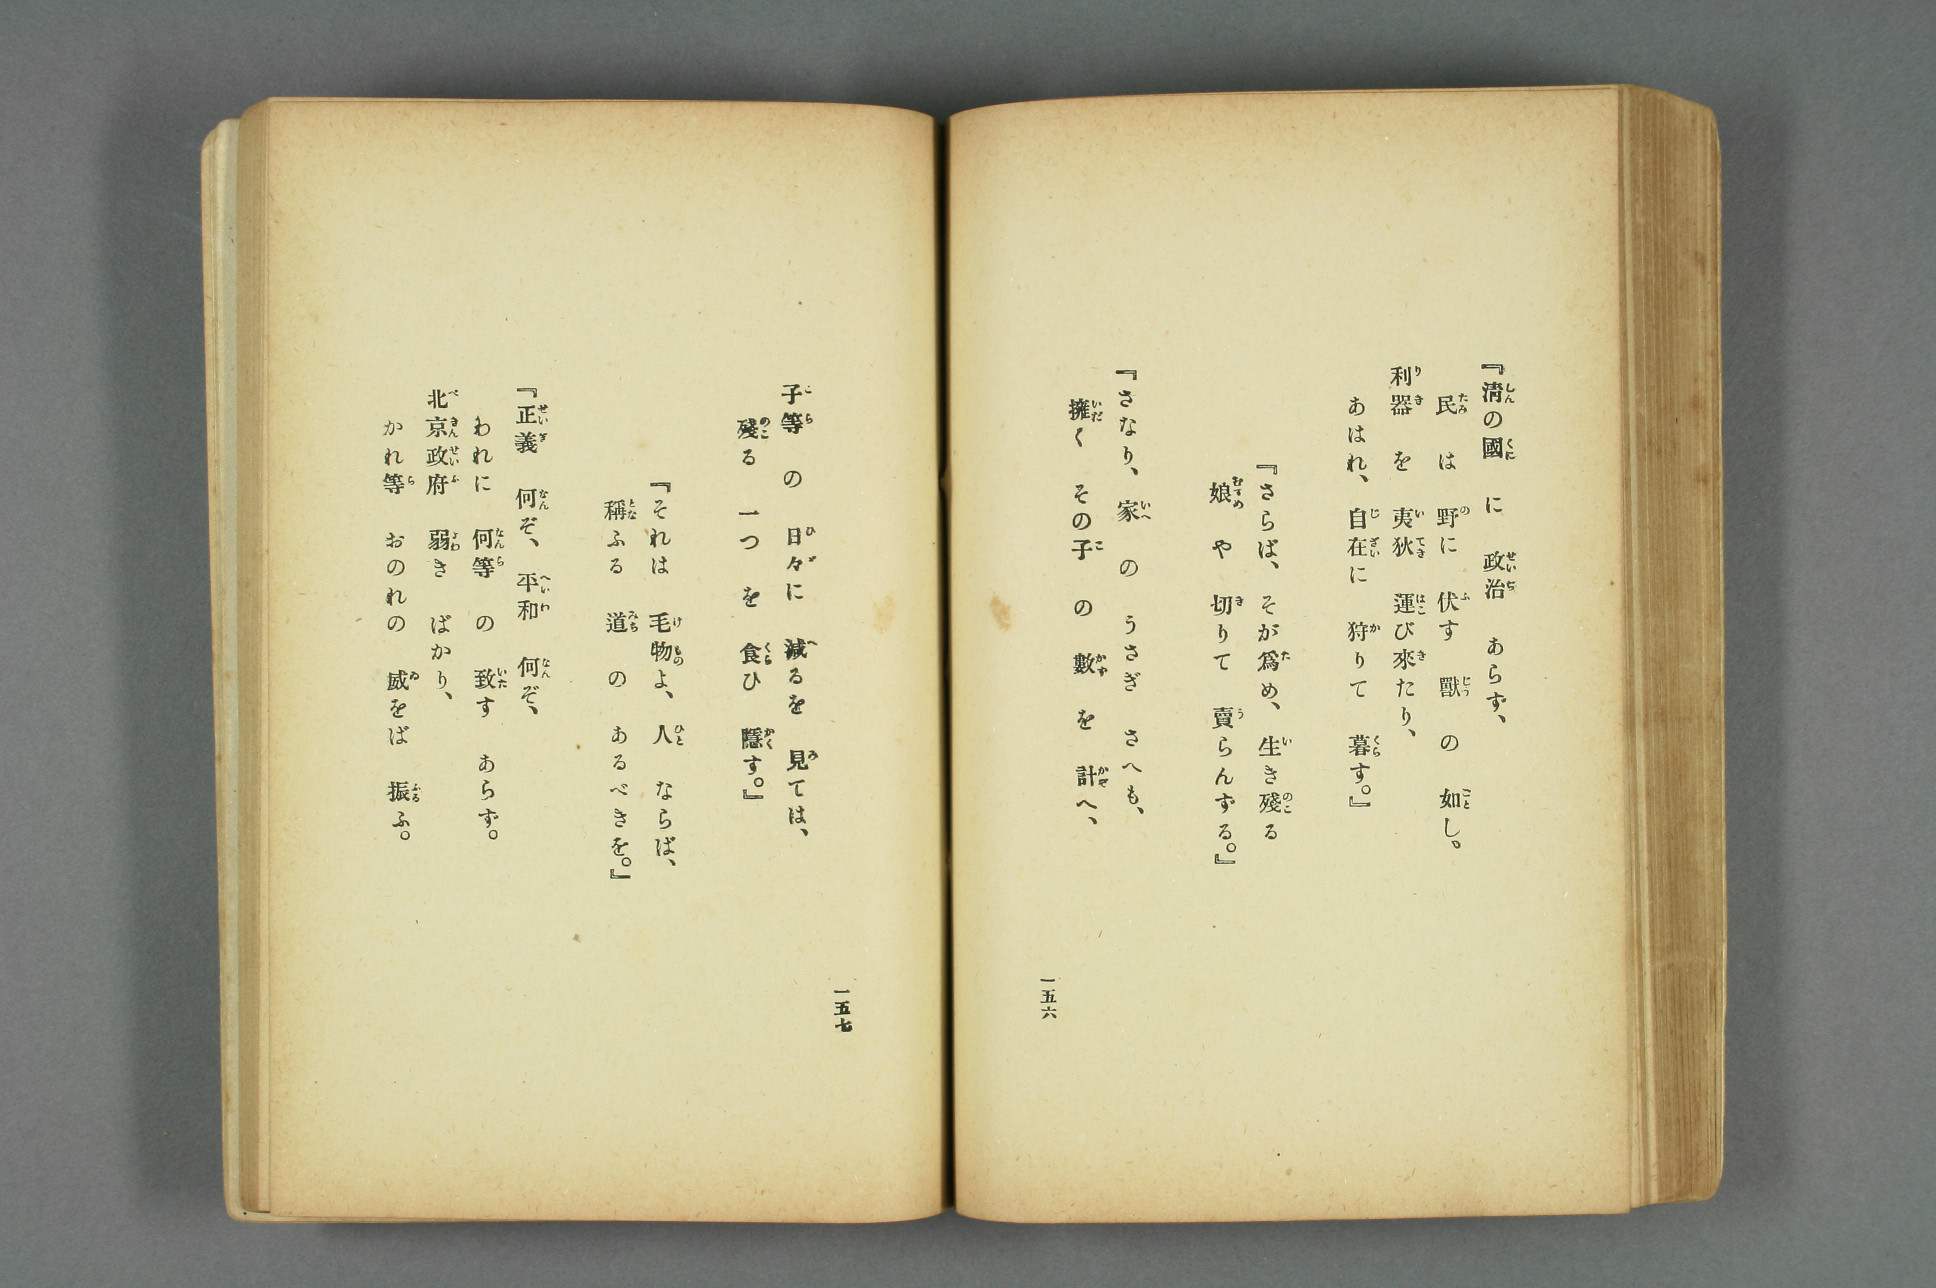 『淸の國 に 政治 あらず、
民 は 野に 伏す 獸 の 如し。
利器 を 夷狄 運び來たり、
あはれ、自在に 狩りて 暮す。』
『さらば、そが爲め、生き殘る
娘 や 切りて 賣らんずる。』
『さなり、家 の うさぎ さへも、
擁く その子 の 數 を 計へ、
一五六
子等 の 日々に 減るを 見ては、
殘る 一つ を 食ひ 隱す。』
『それは 毛物よ、人 ならば、
稱ふる 道 の あるべきを。』
『正義 何ぞ、平和 何ぞ、
われに 何等 の 致す あらず。
北京政府 弱き ばかり、
かれ等 おのれの 威をば 振ふ。
一五七